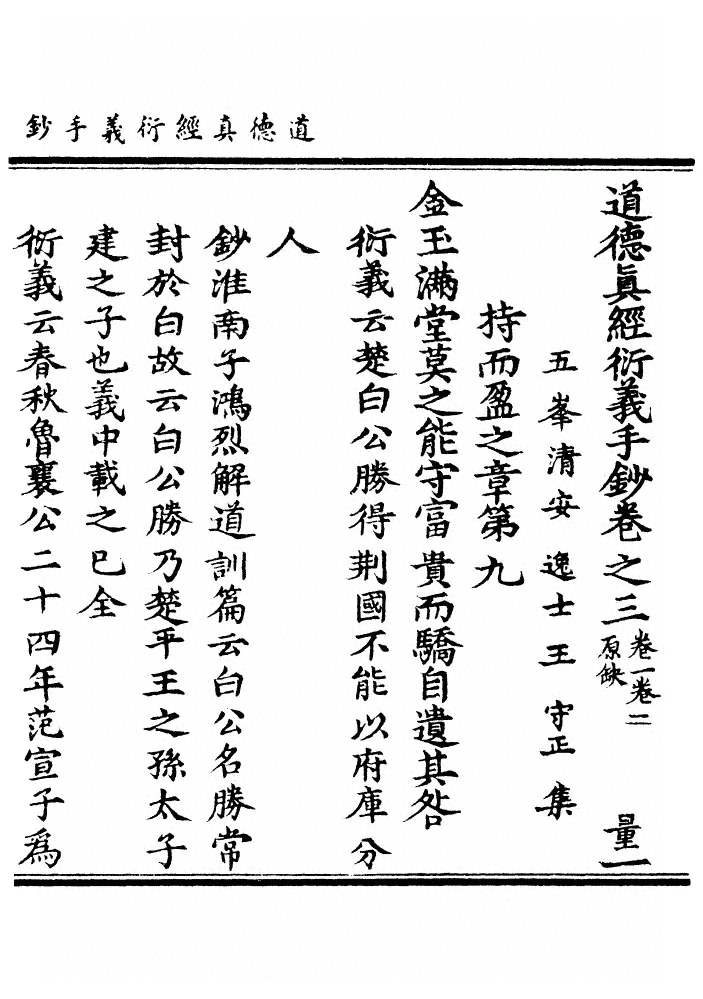 道德真經衍義手鈔
道德眞經衍義手鈔卷之三 卷一卷二原缺 量一
五峯清安逸士王守正集
持而盈之章第九
金玉滿堂莫之能守富貴而驕自遺其咎
衍義云楚白公勝得荆國不能以府庫分
人
鈔淮南子鴻烈解道訓篇云白公名勝常
封於白故云白公勝乃楚平王之孫太子
建之子也義中載之已全
衍義云春秋魯襄公二十四年范宣子爲